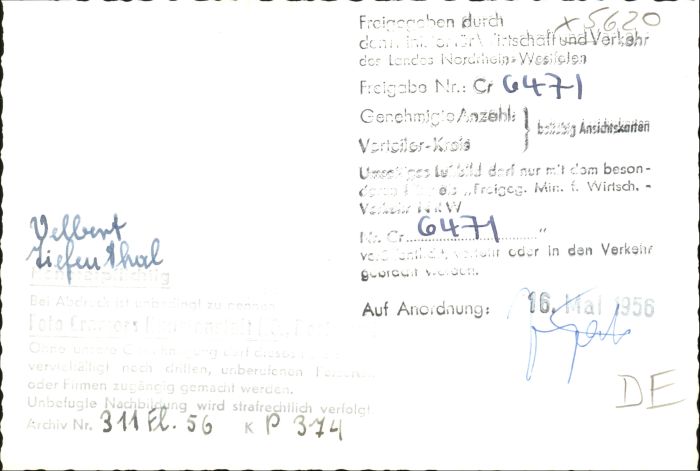 x 5620
Freigegeben durch
Wirtschaft und Verkehr
des Landes Nordrhein-Westfalen
Freigabe Nr.: Cr 6471
Genehmigte Anzahl:
beliebig Ansichtskarten
Verteiler-Kreis
Umseitiges Luftbild darf nur mit dem beson-
als „Freigeg. Min. f. Wirtsch. -
Verkehr NRW
Nr. Cr 6471 "
oder in den Verkehr
gebracht werden.
Auf Anordnung: 16. Mai 1956
Velbert
Tiefenthal
Bei Abdruck ist unbedingt zu nennen
Foto Cramers
Ohne unsere Genehmigung darf dieses
vervielfältigt noch dritten, unberufenen Personen
oder Firmen zugängig gemacht werden.
Unbefugte Nachbildung wird strafrechtlich verfolgt
Archiv Nr. 311 Fl. 56 K P 374
DE